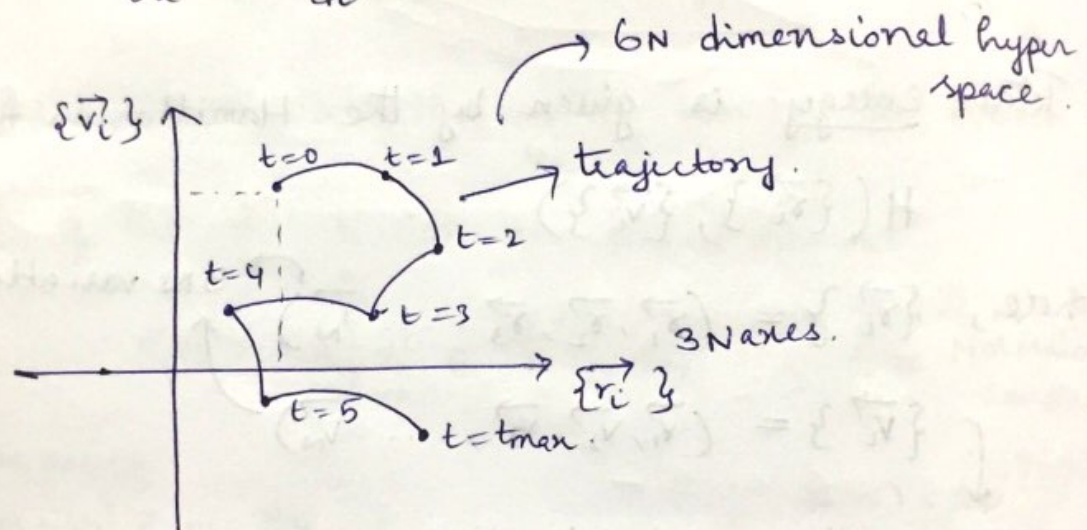 6N dimensional hyper
space.
{v⃗ᵢ}
t=0
t=1
trajectory.
t=2
t=4
t=3
3N axes.
{r⃗ᵢ}
t=5
t=tmax.